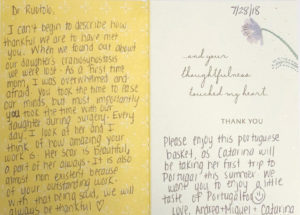 Dr. Ruviolo,
I can't begin to describe how
thankful we are to have met
you. When we found out about
our daughter's craniosynostosis
we were lost. As a first time
mom, I was overwhelmed and
afraid. You took the time to ease
our minds but most importantly
you took the time with our
daughter during surgery. Every
day I look at her and I
think of how amazing your
work is. Her scar is beautiful,
a part of her always. It is also
almost non existent because
of your outstanding work.
With that being said, we will
always be thankful ♡
7/28/18
...and your
thoughtfulness
touched my heart.
THANK YOU
Please enjoy this portuguese
basket, as Catarina will
be taking her first trip to
Portugal this summer we
want you to enjoy a little
taste of Portugal too ☺
Love, Andrea + Miguel + Catarina